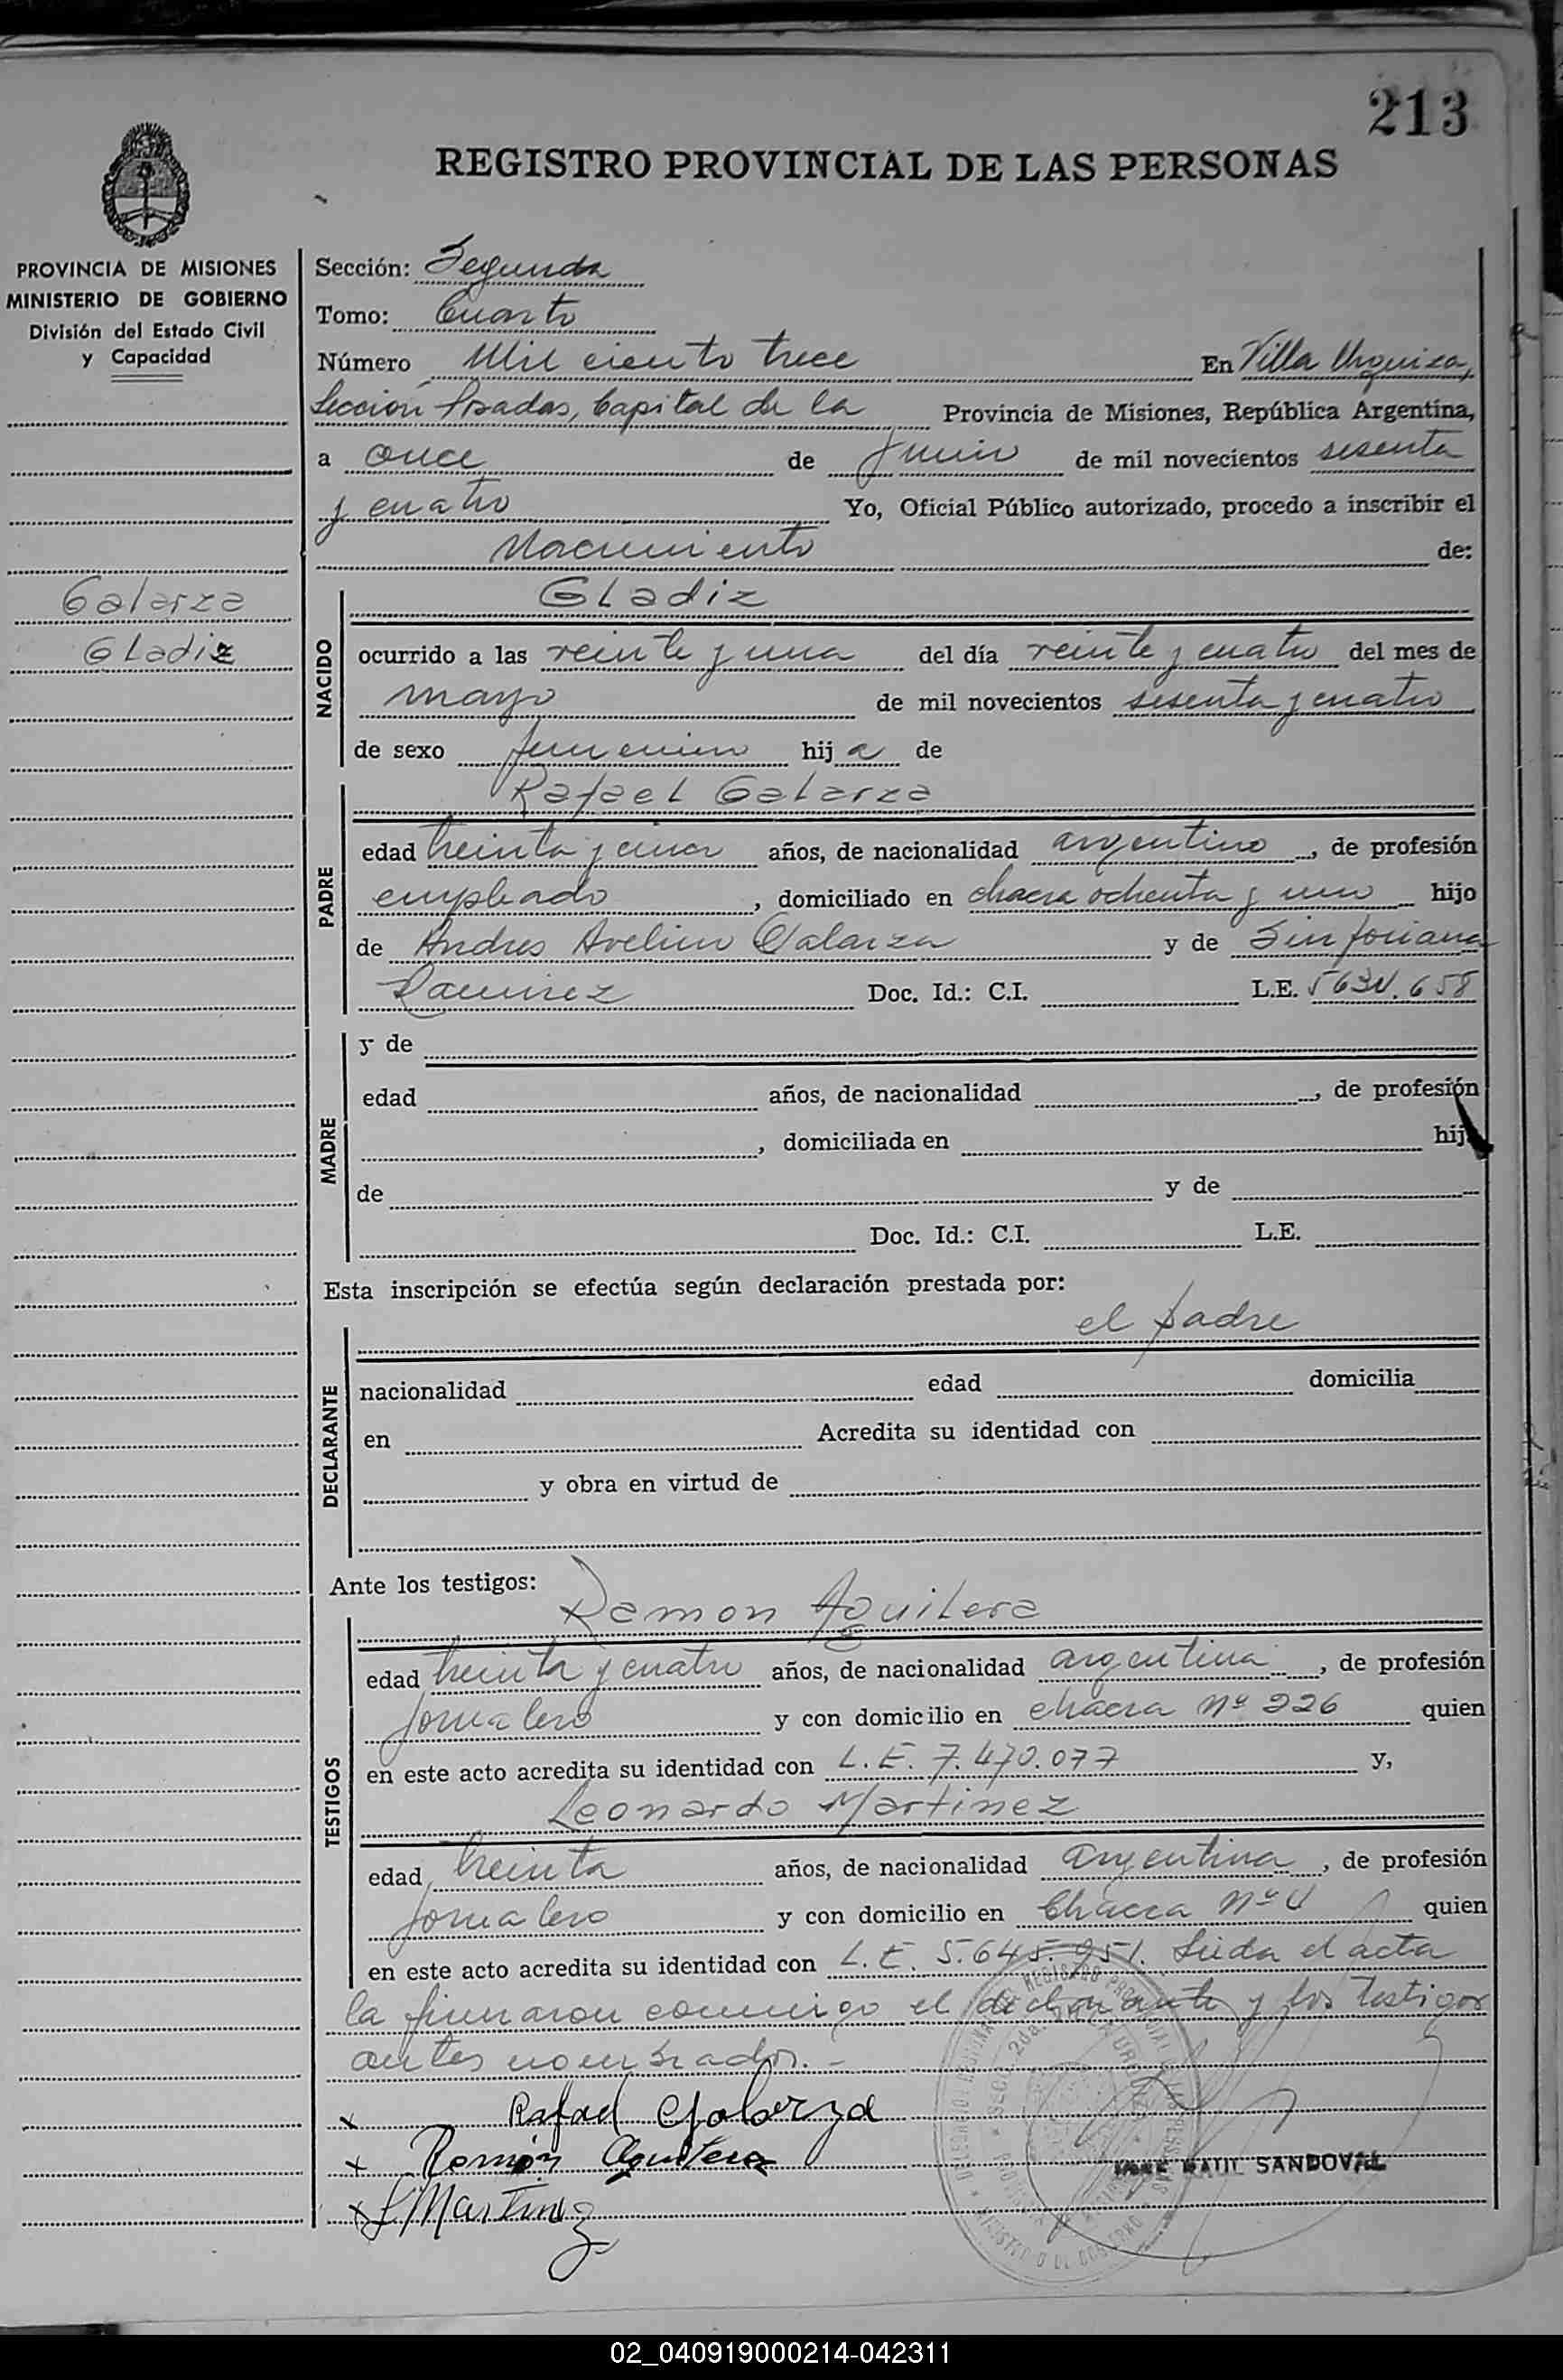 213
REGISTRO PROVINCIAL DE LAS PERSONAS
PROVINCIA DE MISIONES
MINISTERIO DE GOBIERNO
División del Estado Civil
y Capacidad
Galarza
Gladiz
Sección: Segunda
Tomo: Cuarto
Número Mil ciento trece En Villa Urquiza,
Sección Posadas, Capital de la Provincia de Misiones, República Argentina,
a once de Junio de mil novecientos sesenta
y cuatro Yo, Oficial Público autorizado, procedo a inscribir el
Nacimiento de:
NACIDO
Gladiz
ocurrido a las veinte y una del día veinte y cuatro del mes de
mayo de mil novecientos sesenta y cuatro
de sexo femenino hija de
PADRE
Rafael Galarza
edad treinta y cinco años, de nacionalidad argentino, de profesión
empleado, domiciliado en chacra ochenta y uno hijo
de Andres Avelino Galarza y de Sinforiana
Ramirez Doc. Id.: C.I. L.E.
MADRE
y de
edad años, de nacionalidad , de profesión
, domiciliada en hij
de y de
Doc. Id.: C.I. L.E.
Esta inscripción se efectúa según declaración prestada por:
el padre
DECLARANTE
nacionalidad edad domicilia
en Acredita su identidad con
y obra en virtud de
Ante los testigos:
TESTIGOS
Ramon Aguilera
edad treinta y cuatro años, de nacionalidad argentina, de profesión
Jornalero y con domicilio en chacra Nº 226 quien
en este acto acredita su identidad con L.E. 7.470.077 y,
Leonardo Martinez
edad treinta años, de nacionalidad argentina, de profesión
Jornalero y con domicilio en Chacra Nº 4 quien
en este acto acredita su identidad con L.E. 5.645.951. Leida el acta
la firmaron conmigo el declarante y los testigos
antes nombrados.-
x Rafael Galarza
x Ramón Aguilera
x L Martinez
SANDOVAL
02_040919000214-042311